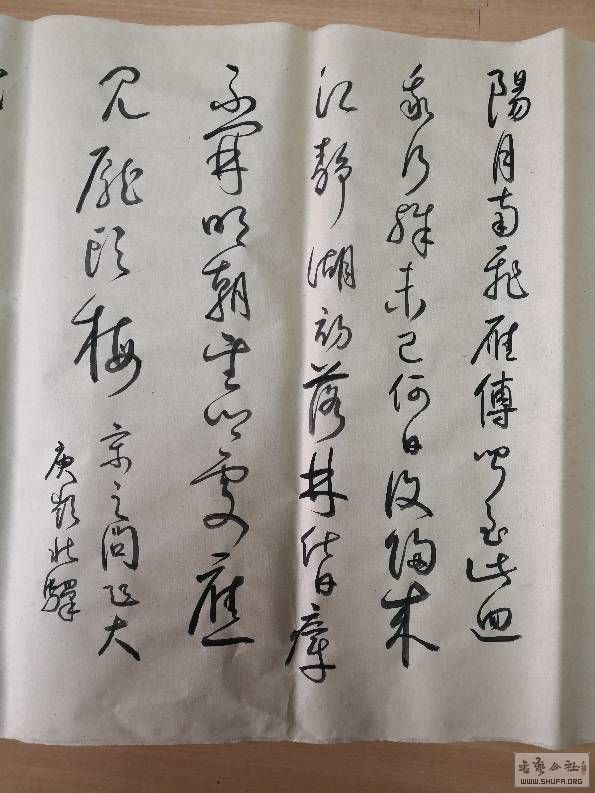 陽月南飛雁傳聞至此回
我行殊未已何日復歸來
江靜潮初落林昏瘴
不開明朝望鄉處應
見隴頭梅宋之問題大
庾嶺北驛
书艺公社
WWW.SHUFA.ORG